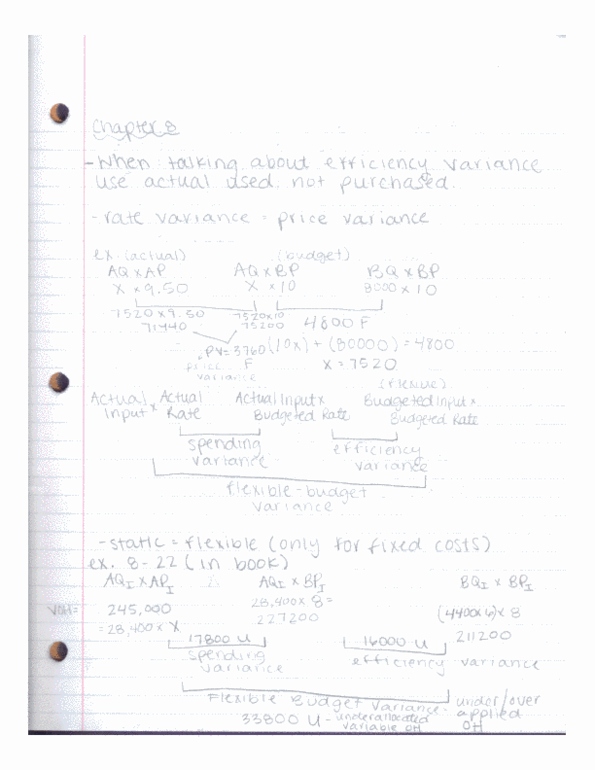 Chapter 8
- When talking about efficiency variance
use actual used not purchased.
- rate variance = price variance
ex. (actual) (budget)
AQ x AP AQ x BP BQ x BP
X x 9.50 X x 10 8000 x 10
7520 x 9.50 7520x10 4800 F
71440 75200
PV = 3760 (10x) + (80000) = 4800
price F x = 7520
variance
(flexible)
Actual x Actual Actual Input x Budgeted Input x
Input Rate Budgeted Rate Budgeted Rate
spending efficiency
variance variance
flexible-budget
variance
- static = flexible (only for fixed costs)
ex. 8-22 (in book)
AQI x API AQI x BPI BQI x BPI
VOH = 245,000 28,400 x 8 = (4400x6) x 8
= 28,400 x X 227200 211200
17800 U 16000 U
spending efficiency variance
variance
Flexible Budget Variance - under/over
33800 U - underallocated applied
variable OH OH